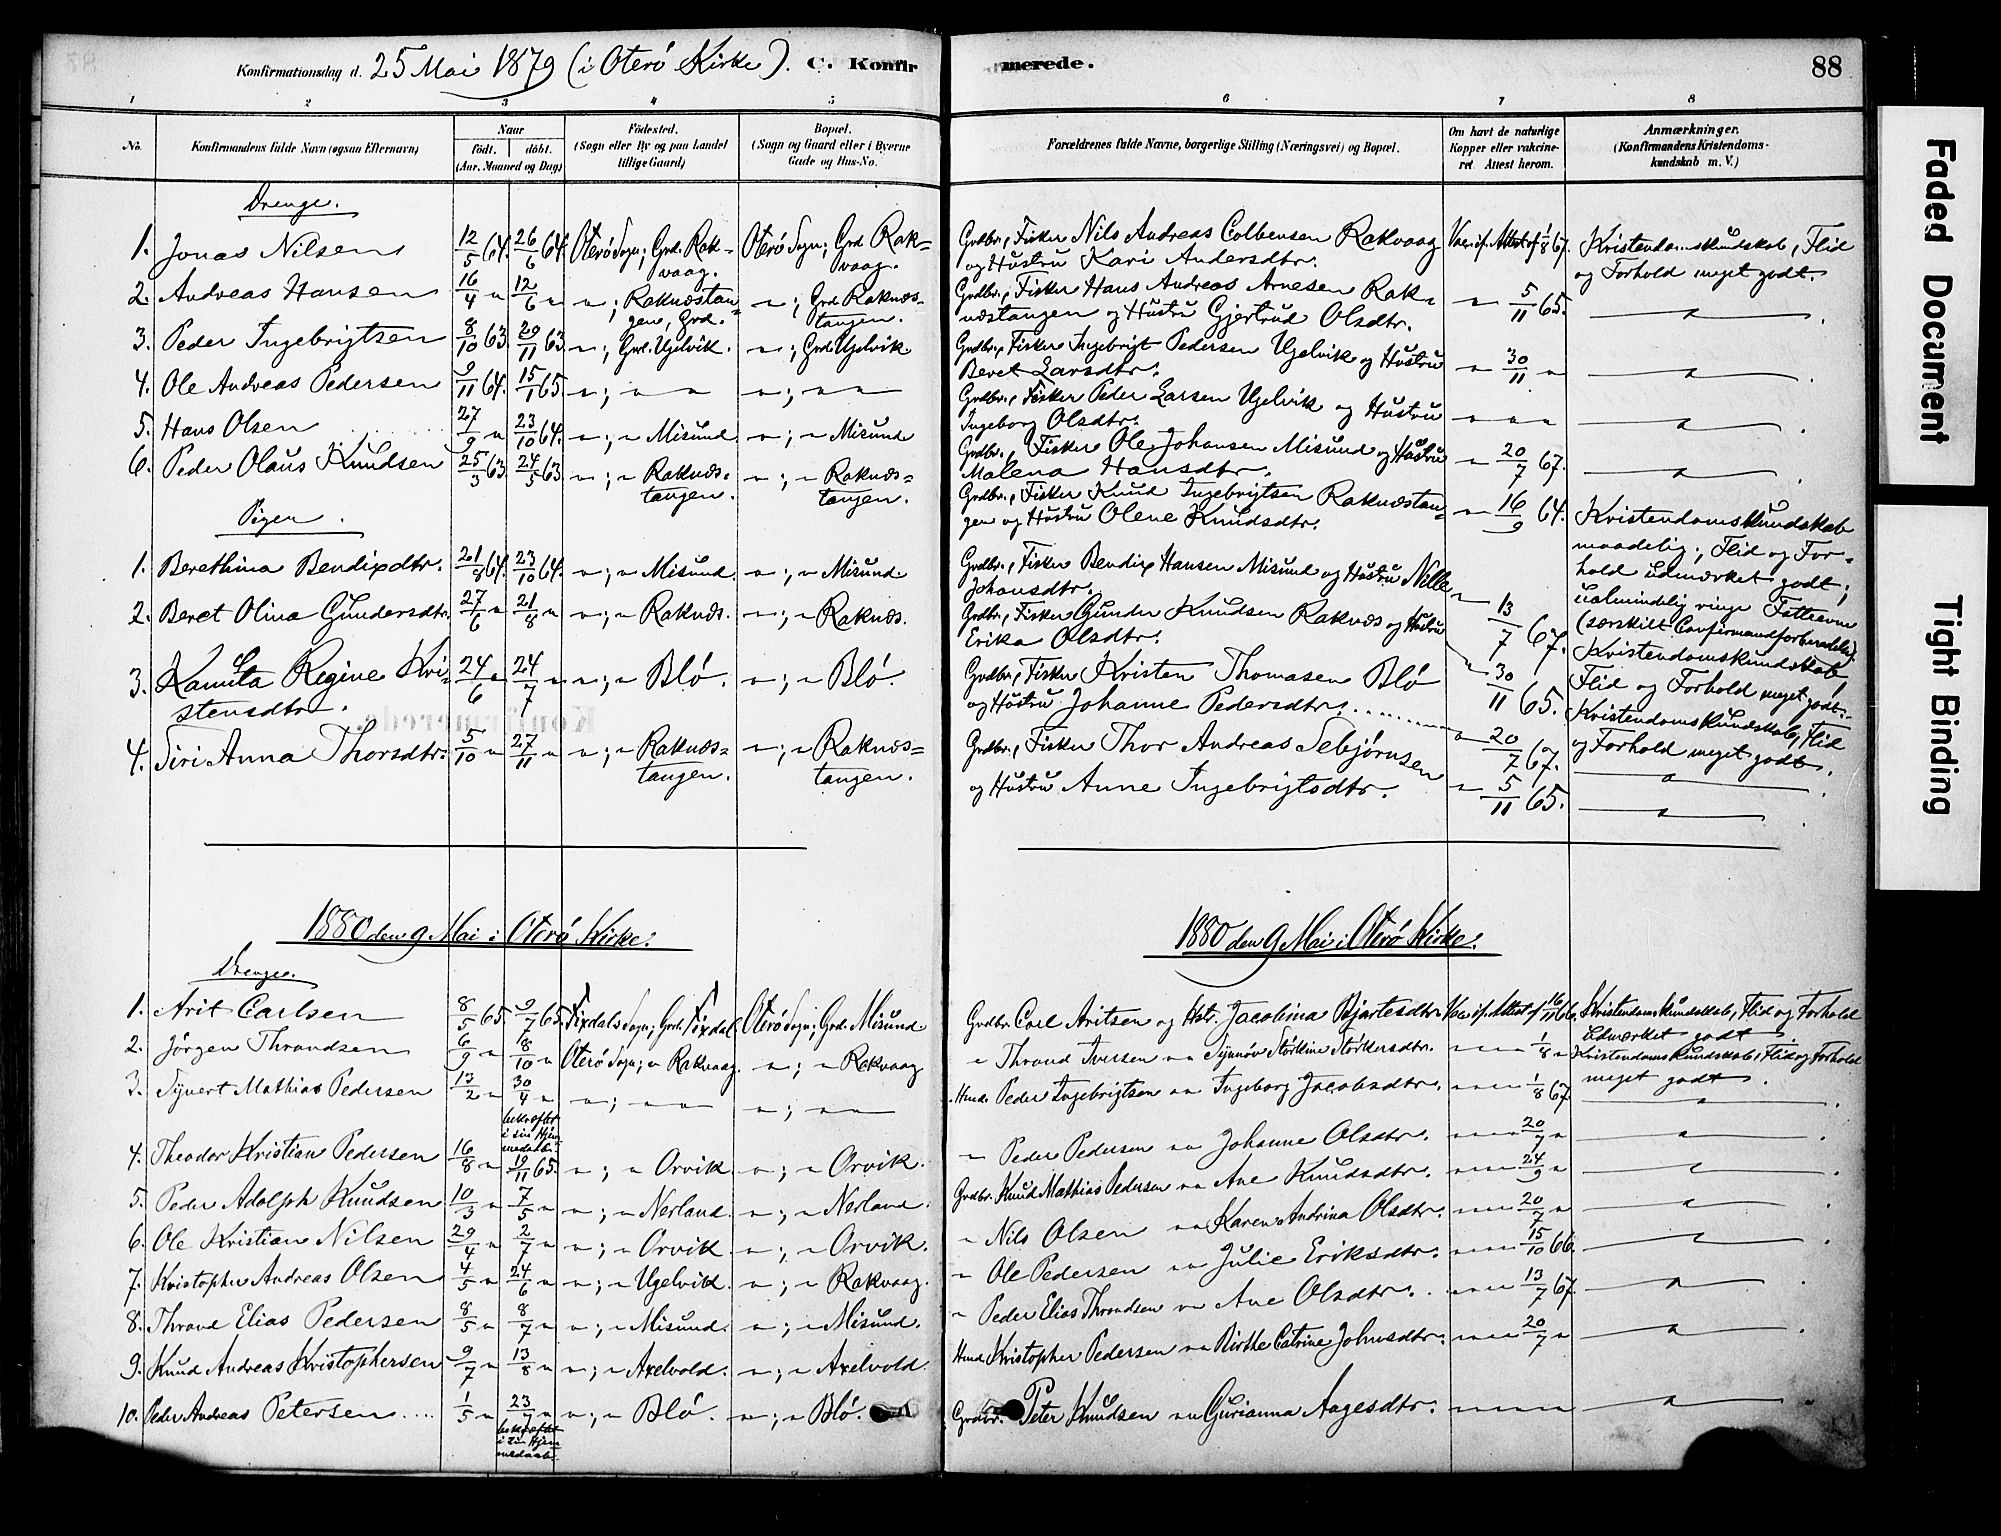 Konfirmationsdag d. 25 Mai 1879 (i Oterö Kirke). C. Konfir
1 2 3 4 5
No. Konfirmandens fulde Navn (ogsaa Efternavn) Naar født. døbt. (Aar, Maaned og Dag) Fødested. (Sogn eller By og paa Landet tillige Gaard) Bopæl. (Sogn og Gaard eller i Byerne Gade og Hus-No.
Drenge.
1. Jonas Nilsen 12/5 64. 26/6 64. Oterö Sogn; Grd. Rakvaag. Oterö Sogn; Grd Rakvaag.
2. Andreas Hansen 16/4 " 12/6 " "; Raknæstangen, Grd. "; Grd Raknæstangen.
3. Peder Ingebrigtsen 8/10 63 29/11 63 "; Grd. Ugelvik. "; Grd. Ugelvik
4. Ole Andreas Pedersen 9/11 64. 15/1 65. "; " " "; " "
5. Hans Olsen 27/9 " 23/10 64. "; " Misund "; " Misund
6. Peder Olaus Knudsen 25/3 63 24/5 63 "; " Raknæstangen. "; " Raknæstangen.
Pigen.
1. Berethina Bendixdtr. 21/8 64. 23/10 64. "; " Misund. "; " Misund.
2. Beret Olina Gundersdtr. 27/6 " 21/8 " "; " Raknæs. "; " Raknæs.
3. Kamita Regine Kristensdtr. 24/6 " 24/7 " "; " Blö. "; " Blö.
4. Siri Anna Thorsdtr. 5/10 " 27/11 " "; " Raknæstangen. "; " Raknæstangen.
1880 den 9 Mai i Oterö Kirke.
Drenge.
1. Arit Carlsen 8/5 65 9/7 65. Tixdals Sogn; Grd. Tixdal. Oterö Sogn; Grd. Misund
2. Jörgen Throndsen 6/9 " 8/10 " Oterö Sogn; " Rakvaag. "; " Rakvaag
3. Syvert Mathias Pedersen 13/2 " 30/4 " "; " " "; " "
bekræftet i sin Hjemmedaab.
4. Theodor Kristian Pedersen 16/8 " 19/11 65. "; " Orvik. "; " Orvik.
5. Peder Adolph Knudsen 10/3 " 7/5 " "; " Nerland. "; " Nerland.
6. Ole Kristian Nilsen 29/4 " 2/7 " "; " Orvik "; " Orvik.
7. Kristopher Andreas Olsen 4/5 " 24/6 " "; " Ugelvik. "; " Rakvaag.
8. Thrond Elias Pedersen 8/5 " 8/7 " "; " Misund. "; " Misund.
9. Knud Andreas Kristophersen 9/7 " 13/8 " "; " Axelvold. "; " Axelvold.
10. Peder Andreas Petersen.... 1/5 " 23/7 " "; " Blö. "; " Blö.
bekræftet i sin Hjemmedaab.
merede. 88
6 7 8
Forældrenes fulde Navne, borgerlige Stilling (Næringsvei) og Bopæl. Om havt de naturlige Kopper eller vakcineret. Attest herom. Anmærkninger. (Konfirmandens Kristendomskundskab m. V.)
Grdbr., Fisker Nils Andreas Colbensen Rakvaag Vac. if. Attest af 1/8 67. Kristendomskundskab, Flid
og Hustru Kari Andersdtr. og Forhold meget godt.
Grdbr., Fisker Hans Andreas Arnesen Rak-
næstangen og Hustru Gjertrud Olsdtr. " 5/11 65. "
Grdbr., Fisker Ingebrigt Pedersen Ugelvik og Hustru
Beret Larsdtr. " 30/11 " "
Grdbr., Fisker Peder Larsen Ugelvik og Hustru
Ingeborg Olsdtr. " " " "
Grdbr., Fisker Ole Johansen Misund og Hustru
Malena Hansdtr. " 20/7 67. "
Grdbr., Fisker Knud Ingebrigtsen Raknæstan-
gen og Hustru Olene Knudsdtr. " 16/9 64. Kristendomskundskab
maadelig; Flid og For-
hold udmærket godt;
ualmindelig ringe Fatteevne
(særskilt Confirmandforberedelse).
Grdbr., Fisker Bendix Hansen Misund og Hustru Nille
Johansdtr. " 13/7 67. Kristendomskundskab,
Flid og Forhold meget godt.
Grdbr., Fisker Gunder Knudsen Raknæs og Hustru
Erika Olsdtr. " 30/11 65. Kristendomskundskab, Flid
og Forhold meget godt.
Grdbr., Fisker Kristen Thomasen Blö
og Hustru Johanne Pedersdtr. " 20/7 67. "
Grdbr., Fisker Thor Andreas Sebjörnsen
og Hustru Anne Ingebrigtsdtr. " 5/11 65. "
1880 den 9 Mai i Oterö Kirke.
Grdbr. Carl Aritsen og Hstr. Jacobina Bjartesdtr. Vac. if. Attest af 16/11 66. Kristendomskundskab, Flid og Forhold
Udmærket godt.
" Thrond Iversen " " Synnöv Störkine Störkersdtr. " " " 1/8 " Kristendomskundskab, Flid og Forhold
meget godt.
Hmd. Peder Ingebrigtsen " " Ingeborg Jacobsdtr. " " " 1/8 67 "
" Peder Pedersen " " Johanne Olsdtr. " " " 20/7 " "
Grdbr. Knud Mathias Pedersen " " Ane Knudsdtr. " " " 24/9 " "
" Nils Olsen " " Karen Andrina Olsdtr. " " " 20/7 " "
" Ole Pedersen " " Julie Eriksdtr. " " " 15/10 66. "
" Peder Elias Throndsen " " Ane Olsdtr. " " " 13/7 67. "
Hmd. Kristopher Pedersen " " Birthe Catrine Johnsdtr. " " " 20/7 " "
Grdbr. Peter Knudsen " " Gurianna Aagesdtr. " " " " "
Faded Document
Tight Binding